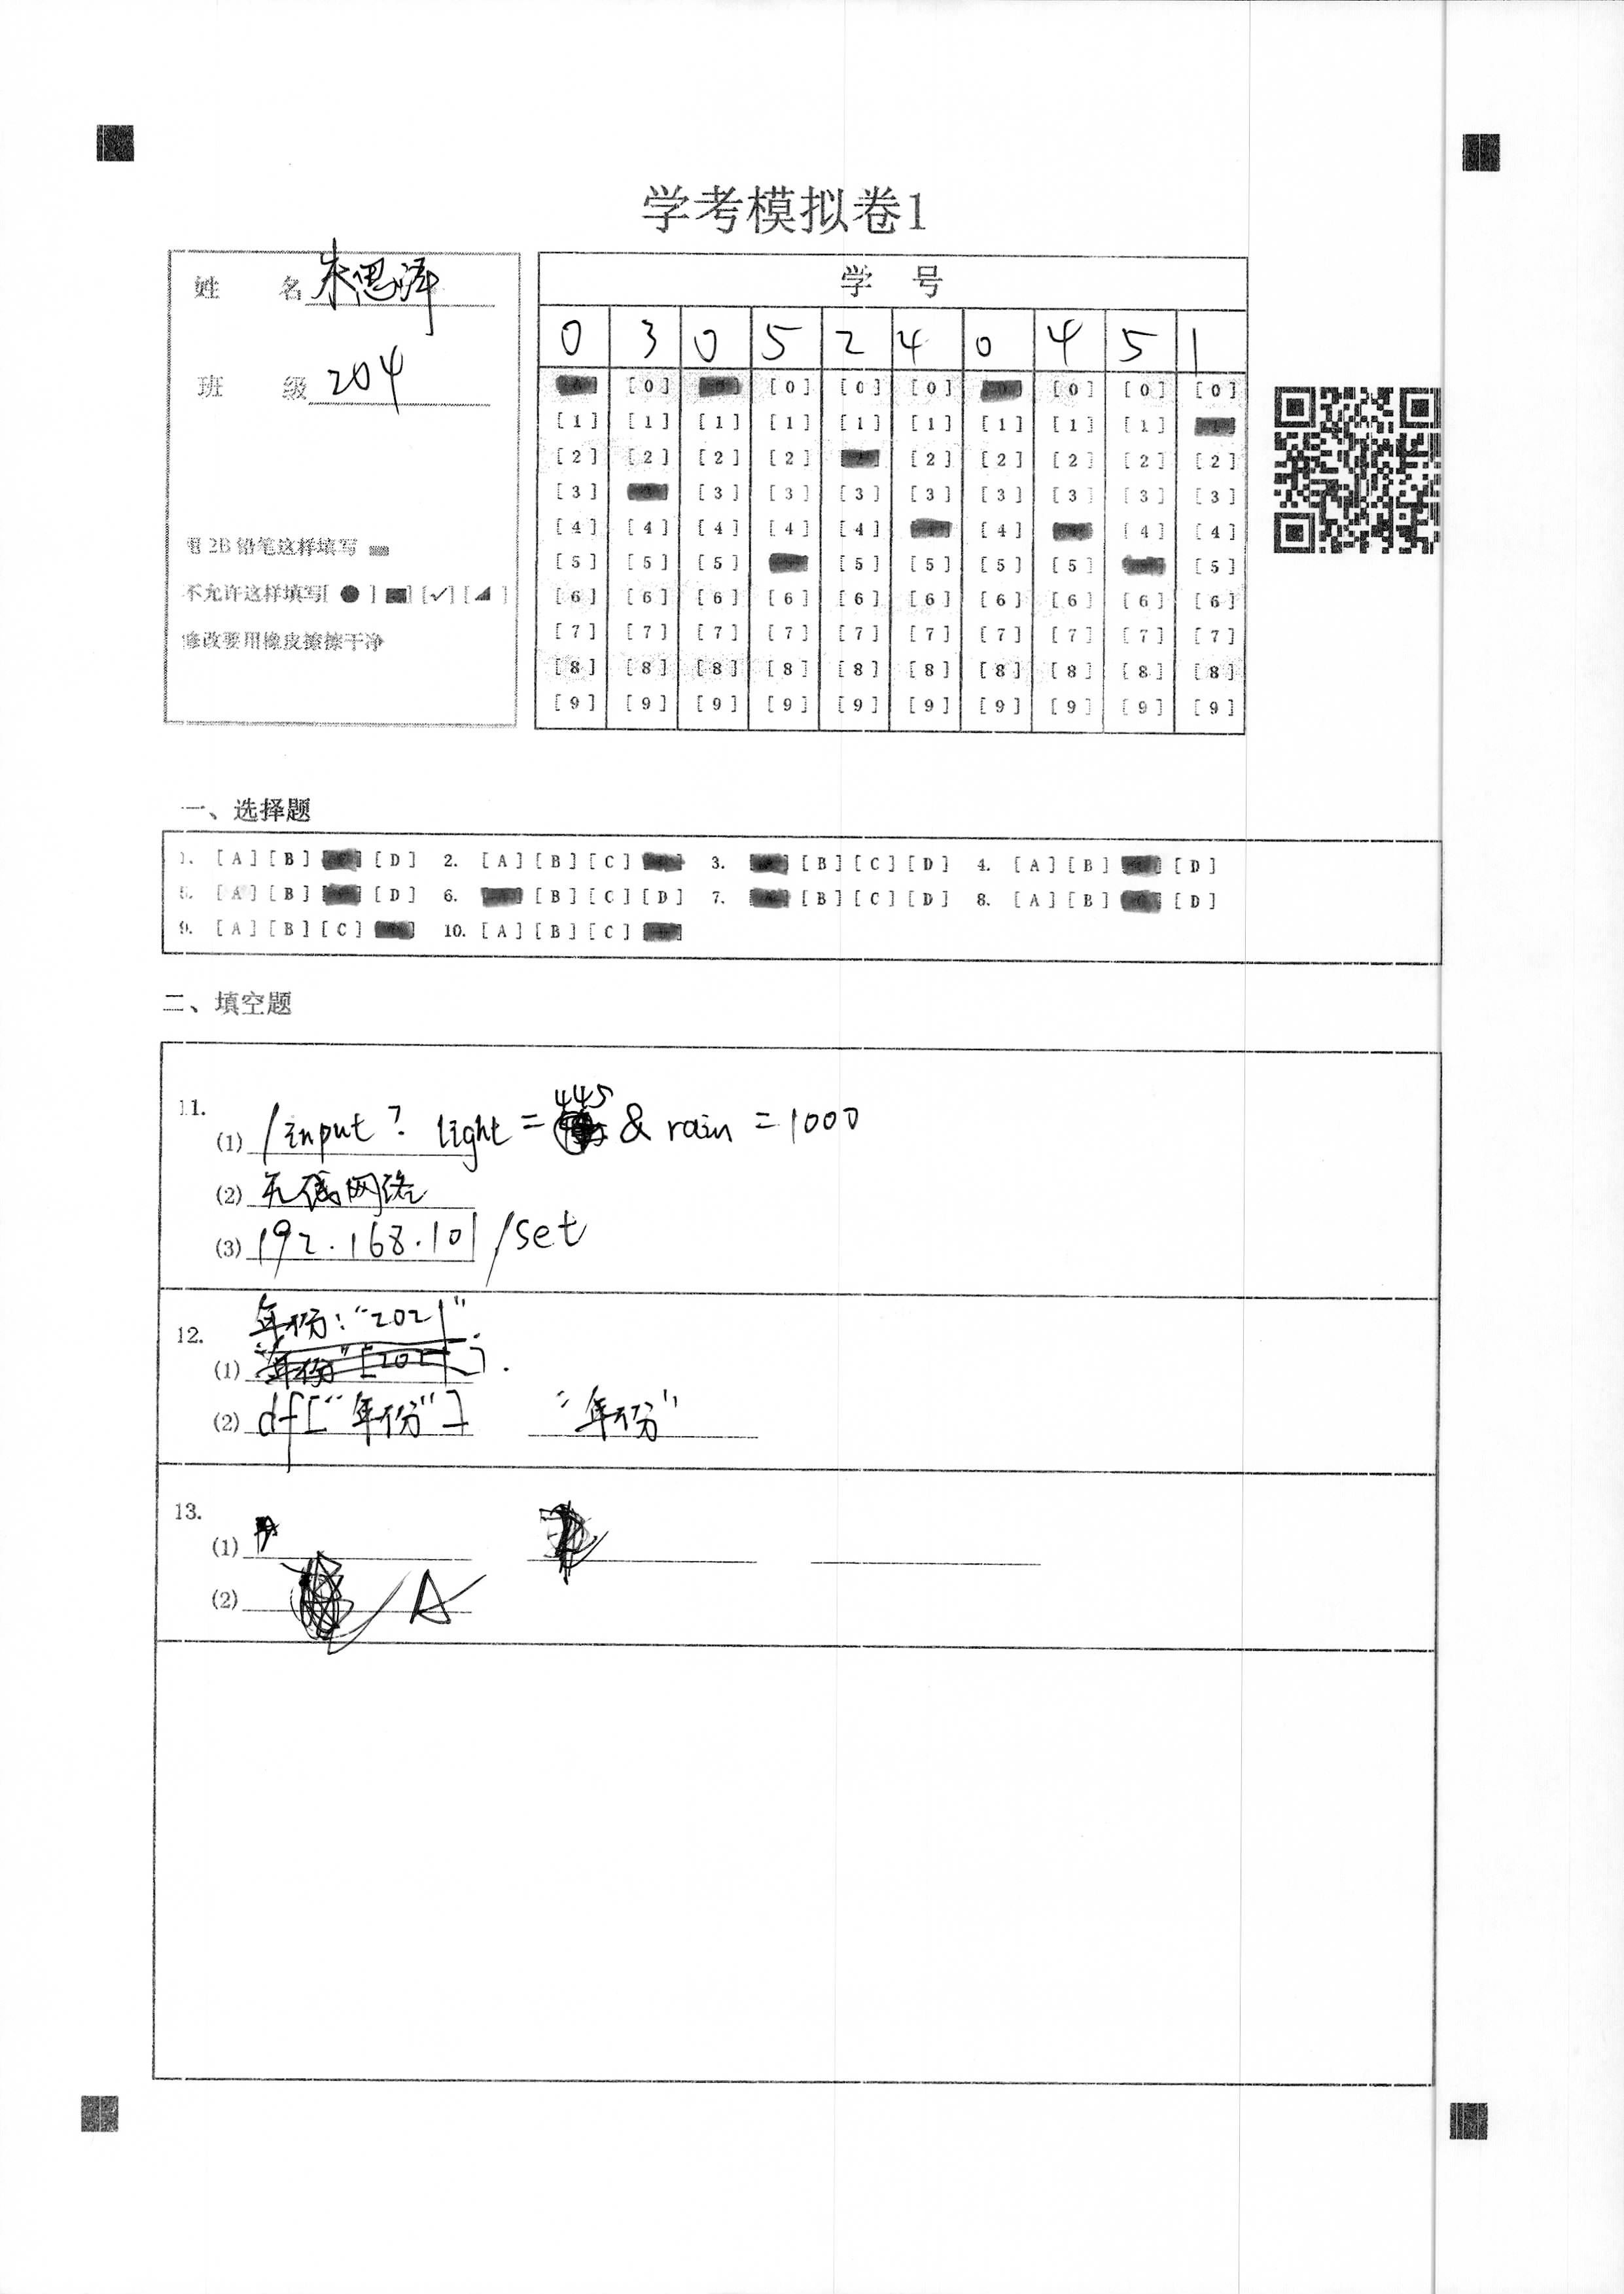 学考模拟卷1
姓 名 朱思泽
班 级 204
用 2B 铅笔这样填写
不允许这样填写[ ● ] [■] [✓] [◢ ]
修改要用橡皮擦擦干净
学 号
0 3 0 5 2 4 0 4 5 1
[0] [0] [0] [0] [0] [0]
[1] [1] [1] [1] [1] [1] [1] [1] [1]
[2] [2] [2] [2] [2] [2] [2] [2] [2]
[3] [3] [3] [3] [3] [3] [3] [3] [3]
[4] [4] [4] [4] [4] [4] [4] [4]
[5] [5] [5] [5] [5] [5] [5] [5]
[6] [6] [6] [6] [6] [6] [6] [6] [6] [6]
[7] [7] [7] [7] [7] [7] [7] [7] [7] [7]
[8] [8] [8] [8] [8] [8] [8] [8] [8] [8]
[9] [9] [9] [9] [9] [9] [9] [9] [9] [9]
一、选择题
1. [A] [B] [D] 2. [A] [B] [C] 3. [B] [C] [D] 4. [A] [B] [D]
5. [A] [B] [D] 6. [B] [C] [D] 7. [B] [C] [D] 8. [A] [B] [D]
9. [A] [B] [C] 10. [A] [B] [C]
二、填空题
11.
(1) /input? light = 445 & rain = 1000
(2) 无线网络
(3) 192.168.101/set
12.
年份:"2021"
(1)
(2) df["年份"] "年份"
13.
(1)
(2) A